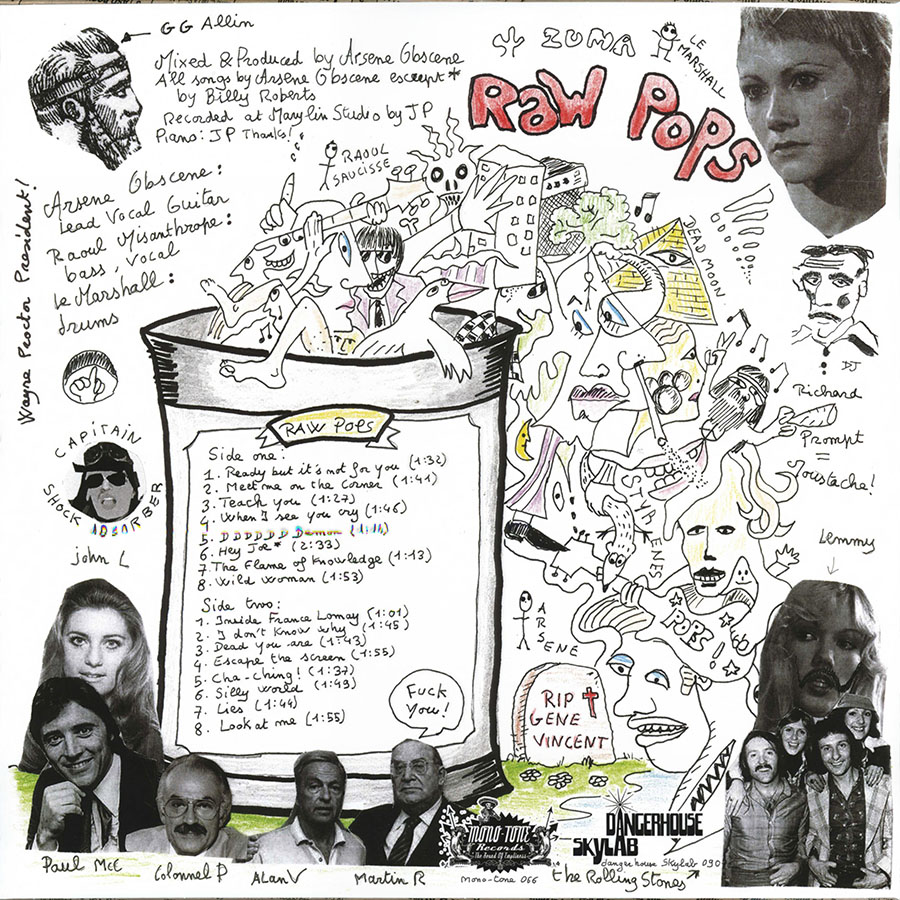 GG Allin
Mixed & Produced by Arsene Obscene
All songs by Arsene Obscene escerpt*
by Billy Roberts
Recorded at Marylin Studio by JP
Piano: JP Thanks!
ZUMA
LE MARSHALL
RAW POPS
RAOUL
SAUCISSE
Arsene Obscene:
Lead Vocal Guitar
Raoul Misanthrope:
bass, vocal
Le Marshall:
drums
Wayne Proctor President!
DEAD MOON
DJ
Richard
Prompt
=
Moustacha!
CAPITAIN
SHOCK ABSORBER
John L
RAW POPS
Side one:
1. Ready but it's not for you (1:32)
2. Meet me on the Corner (1:41)
3. Teach you (1:27)
4. When I see you cry (1:46)
5. DDDDDD Demon
6. Hey Joe* (2:33)
7. The Flame of Knowledge (1:13)
8. Wild Woman (1:53)
Side two:
1. Inside France Lomay (1:01)
2. I don't Know why (1:45)
3. Dead you are (1:43)
4. Escape the screen (1:55)
5. Cha-ching! (1:37)
6. Silly world (1:49)
7. Lies (1:44)
8. Look at me (1:55)
Fuck
You!
STYRENES
ARSENE
POPS!
Lemmy
RIP
GENE
VINCENT
Paul McC
Colonnel P
Alan V
Martin R
MONO-TONE
Records
The Sound Of Emptiness
Mono-tone 066
DANGERHOUSE
SKYLAB
dangerhouse Skylab 030
the Rolling Stones